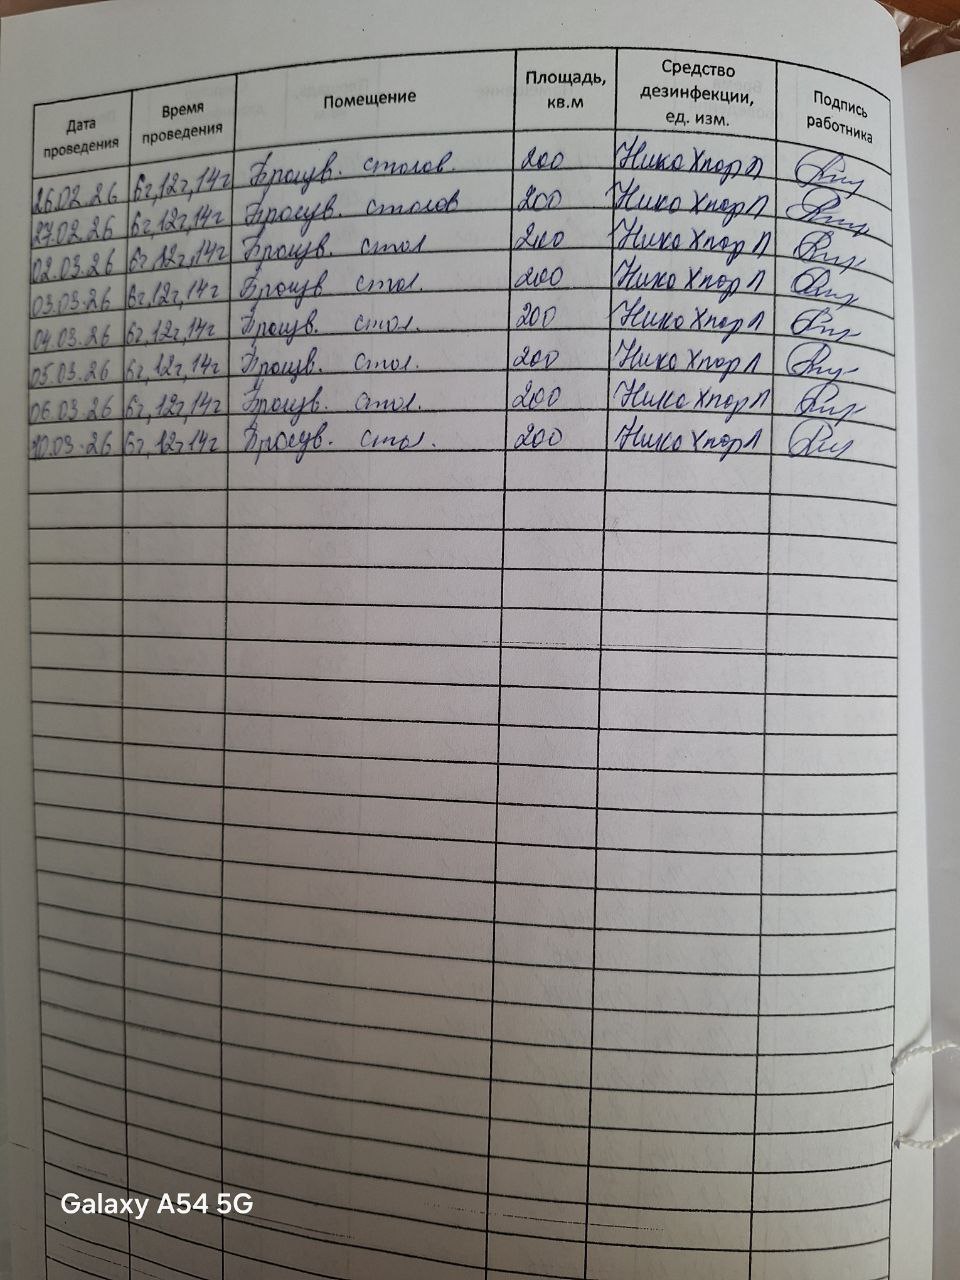 Дата проведения Время проведения Помещение Площадь, кв.м Средство дезинфекции, ед. изм. Подпись работника
26.02.26 6г,12г,14г столов. 200 НикаХлорЛ
27.02.26 6г,12г,14г столов 200 НикаХлорЛ
02.03.26 6г,12г,14г стол 200 НикаХлорЛ
03.03.26 6г,12г,14г стол. 200 НикаХлорЛ
04.03.26 6г,12г,14г стол. 200 НикаХлорЛ
05.03.26 6г,12г,14г стол. 200 НикаХлорЛ
06.03.26 6г,12г,14г стол. 200 НикаХлорЛ
10.03.26 6г,12г,14г стол. 200 НикаХлорЛ
Galaxy A54 5G